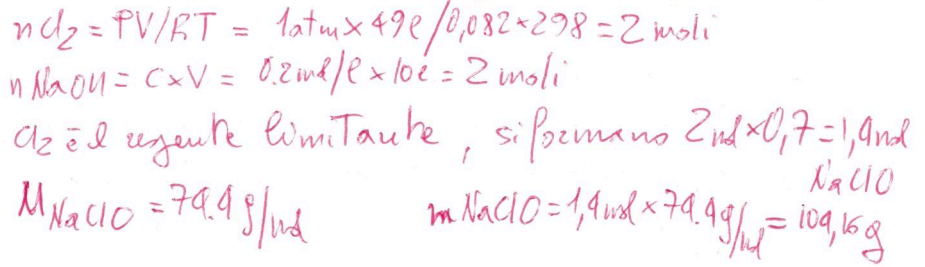 nCl2 = PV/RT = 1atm × 49ℓ/0,082×298 = 2 moli
nNaOH = C×V = 0.2mol/ℓ × 10ℓ = 2 moli
Cl2 è il reagente limitante, si formano 2mol×0,7=1,4mol
NaClO
MNaClO = 74.4g/mol mNaClO = 1,4mol × 74.4g/mol = 104,16g